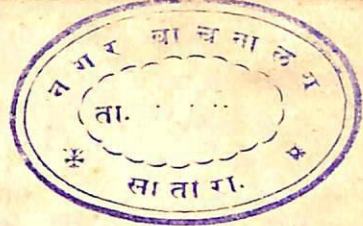 नगर वाचनालय
ता. . . . ..
सातारा.